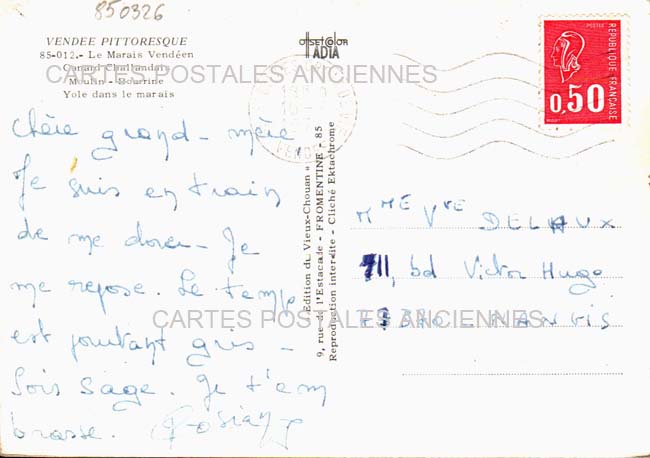 850326
VENDEE PITTORESQUE
85-012.- Le Marais Vendéen
Canard Challandais
Moulin - Bourrine
Yole dans le marais
OFFSETCOLOR
IADIA
POSTES
REPUBLIQUE FRANÇAISE
0,50
CARTES POSTALES ANCIENNES
Chère grand-mère
Je suis en train
de me dorer - Je
me repose. Le temps
est pourtant gris -
Sois sage. Je t'em
brasse.
Edition du « Vieux-Chouan »
9, rue de l'Estacade - FROMENTINE - 85
Reproduction interdite - Cliché Ektachrome
Mme Vve DELHUX
711, bd Victor Hugo
NANGIS
CARTES POSTALES ANCIENNES